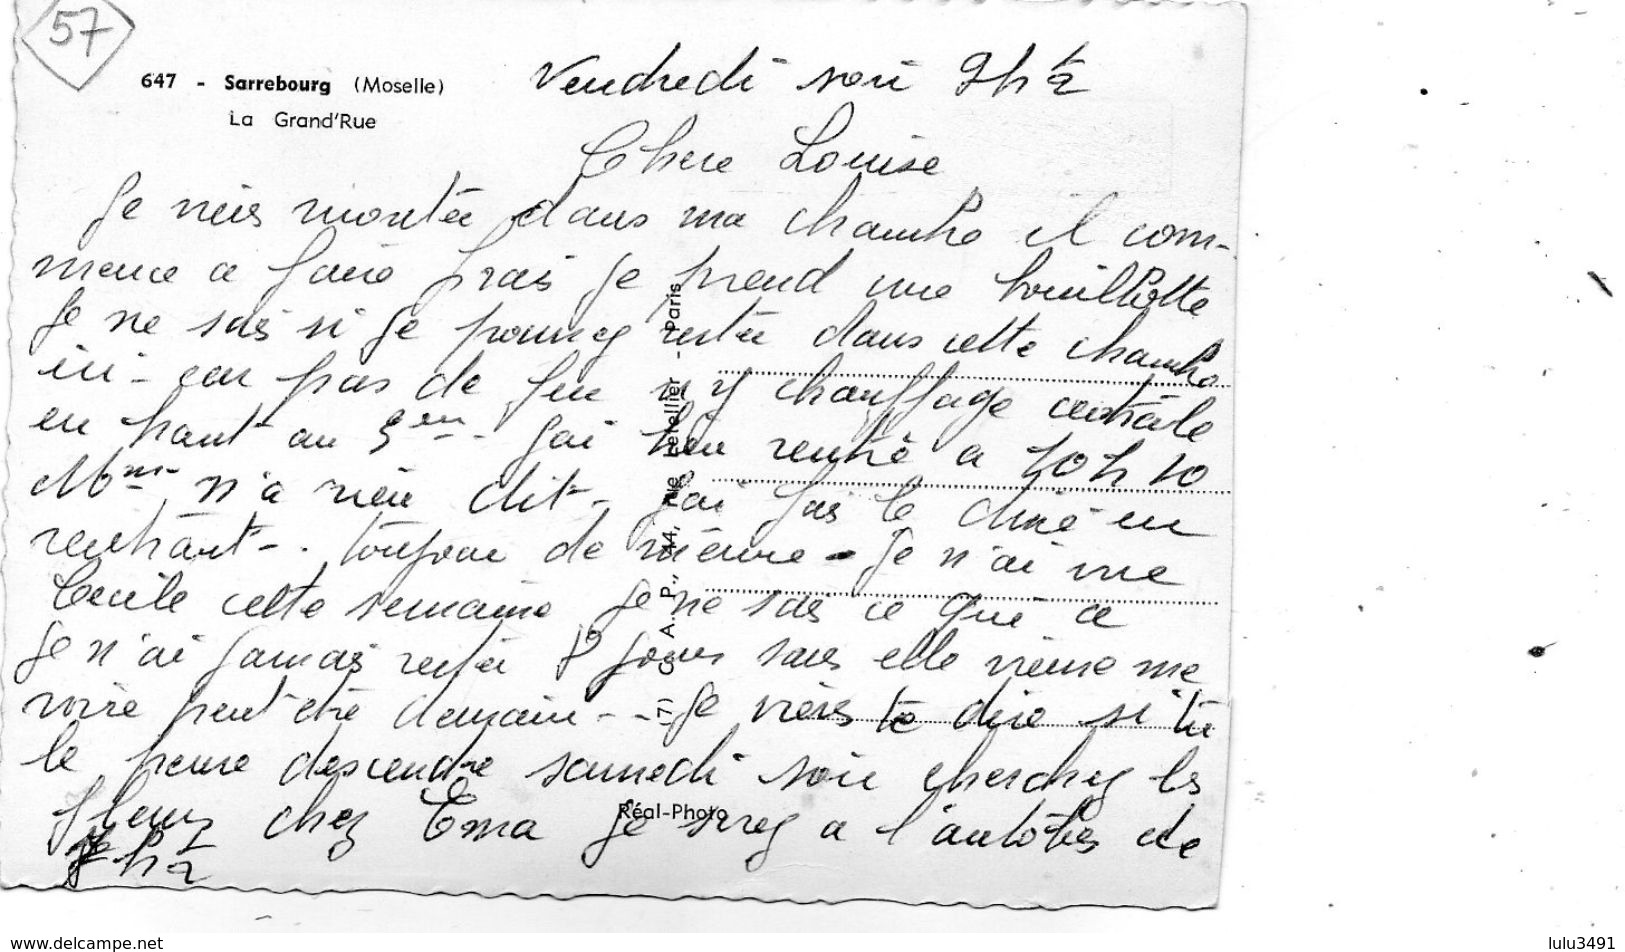 57
647 - Sarrebourg (Moselle)
La Grand'Rue
Vendredi soir 9h ½
Chere Louise
Je viens montée dans ma chambre il com-
mence a faire frais je prend une bouillotte
Je ne sais si je pourrez restée dans cette chambre
ici - car pas de feu n'y chauffage centrale
en haut au 3em - J'ai bien rentré a 10h10
Mme n'a rien dit - j'ai fais le diné en
rentrant - . toujour de même - Je n'ai vue
Cecile cette semaine je ne sais ce qui ce
je n'ai jamais restée 8 jours sans elle vienne me
voire peut etre demain - - Je viens te dire si tu
le peux descendre samedi soir cherchez les
fleurs chez Ema je serez a l'autobus de
7h½
(57) C. A. P., 44, rue Letellier - Paris
Réal-Photo
www.delcampe.net
lulu3491